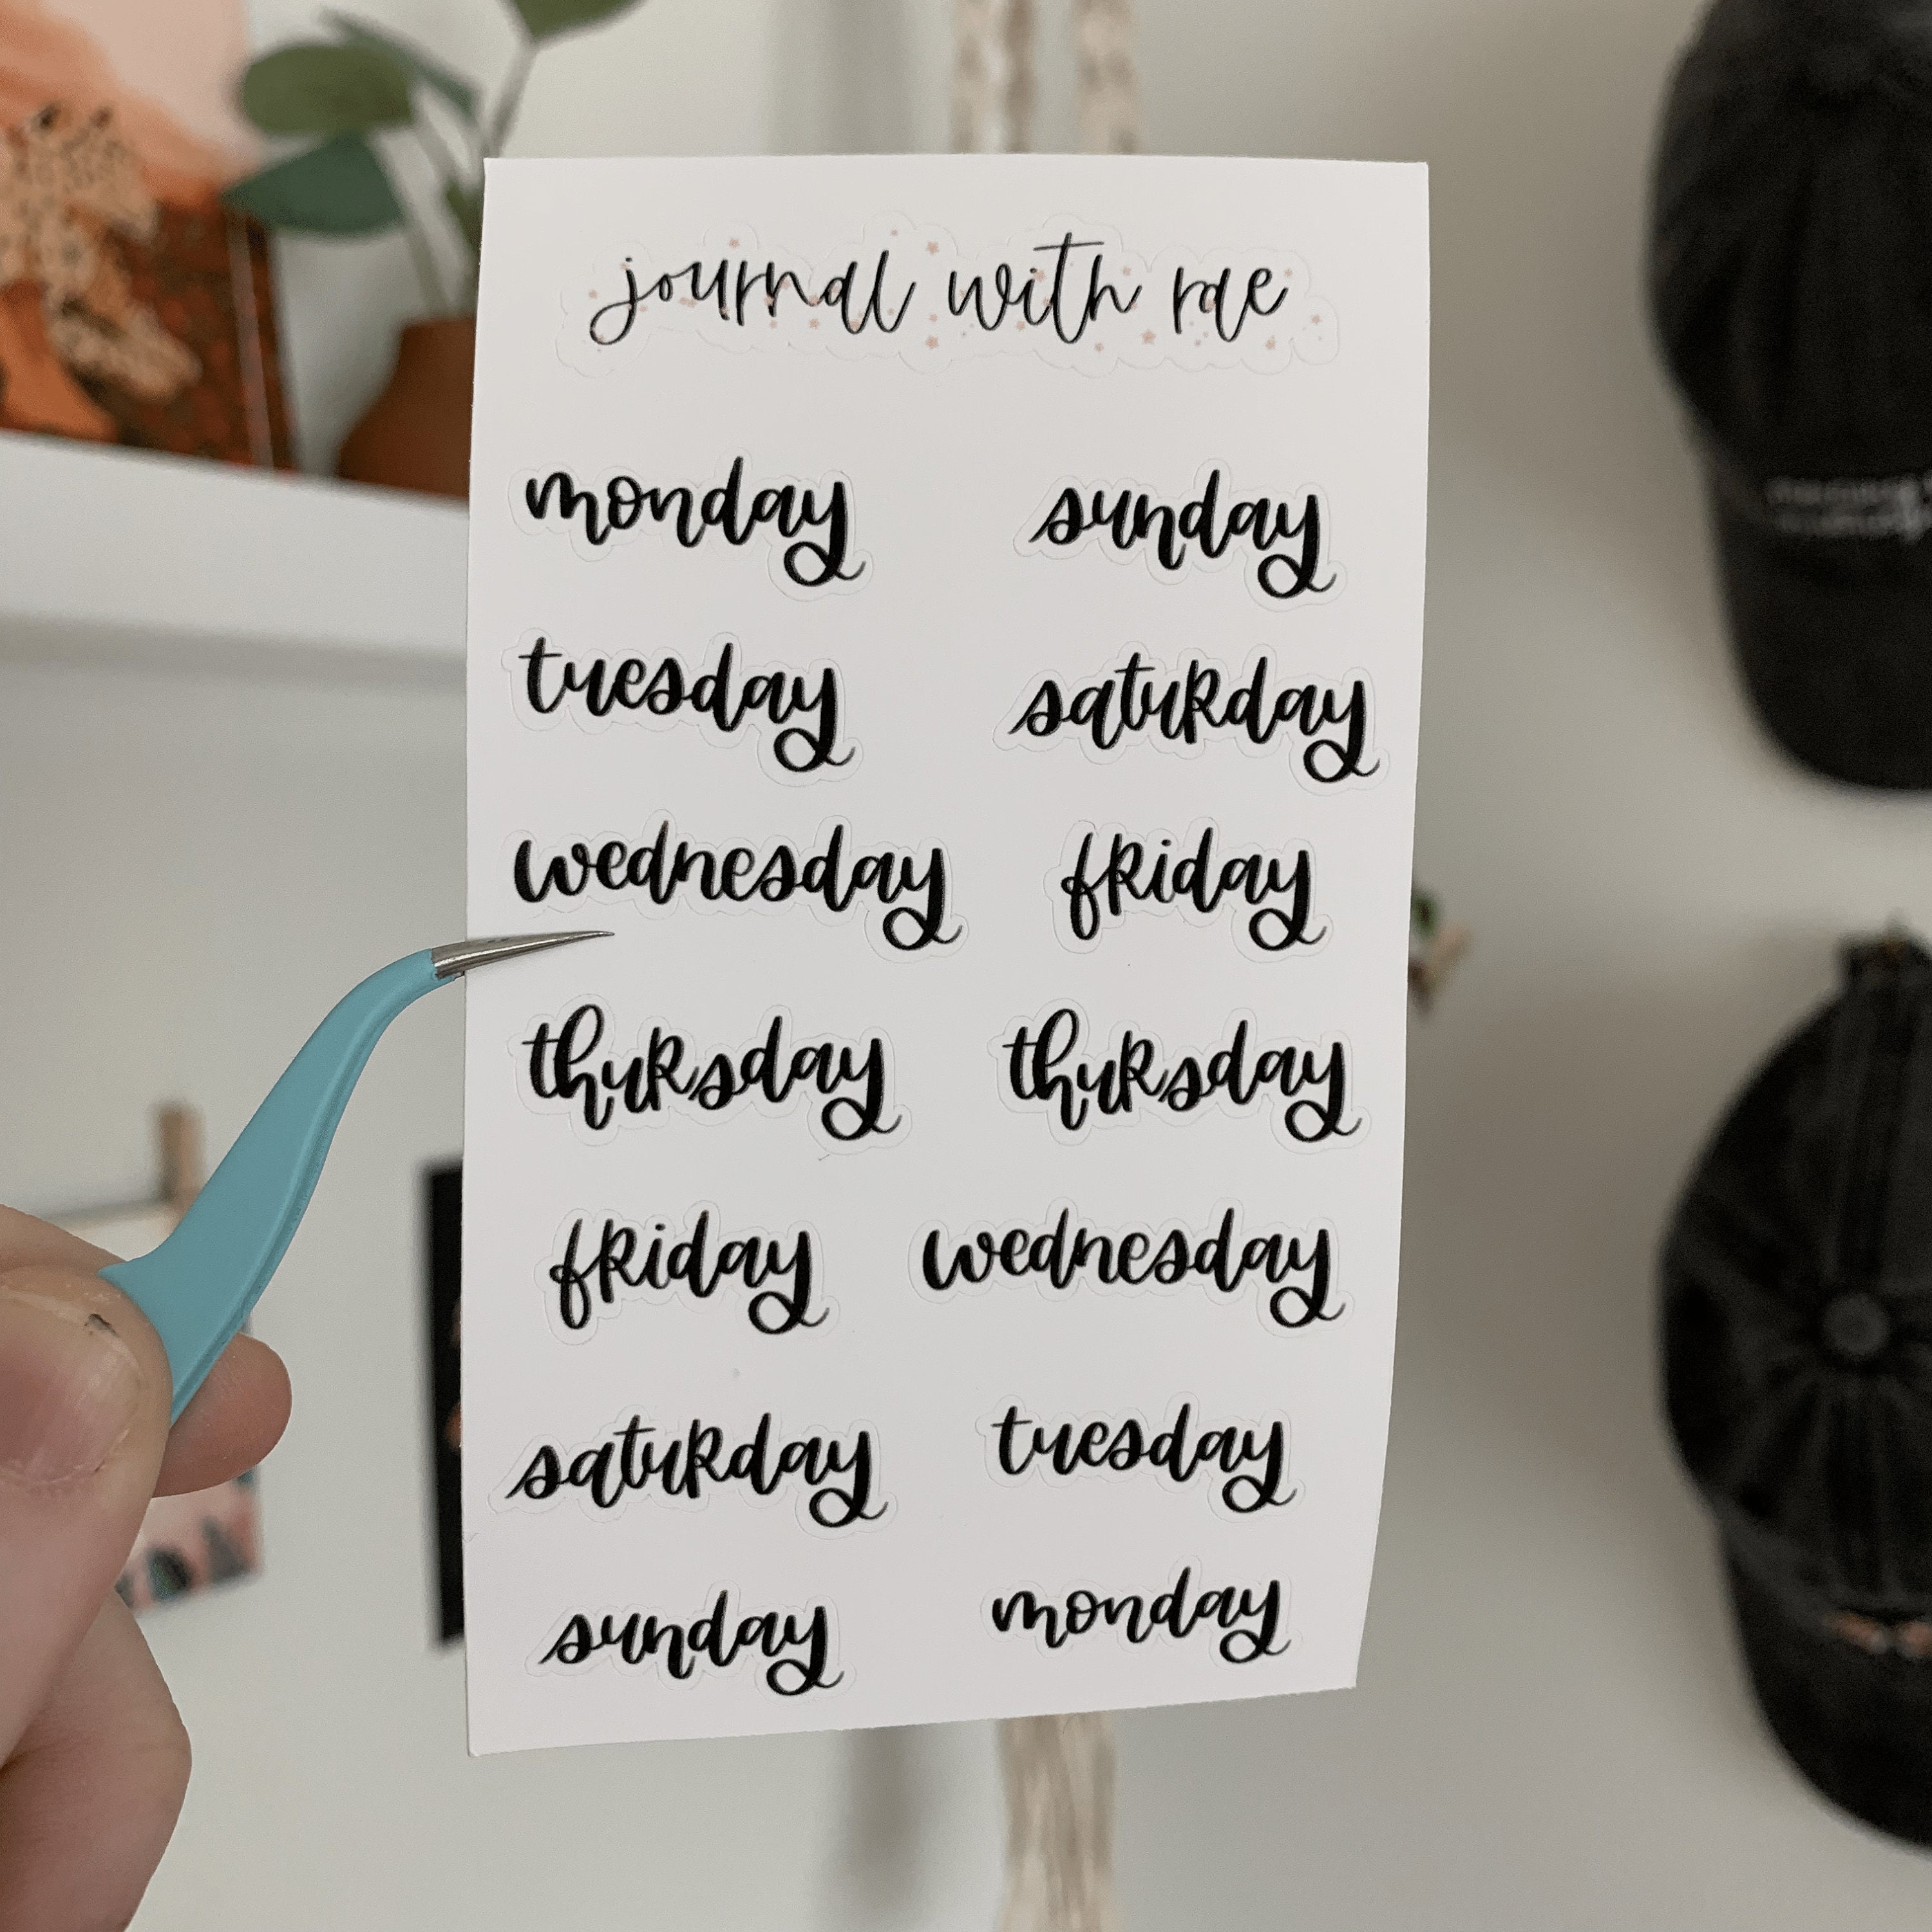 journal with rae
monday sunday
tuesday saturday
wednesday friday
thursday thursday
friday wednesday
saturday tuesday
sunday monday